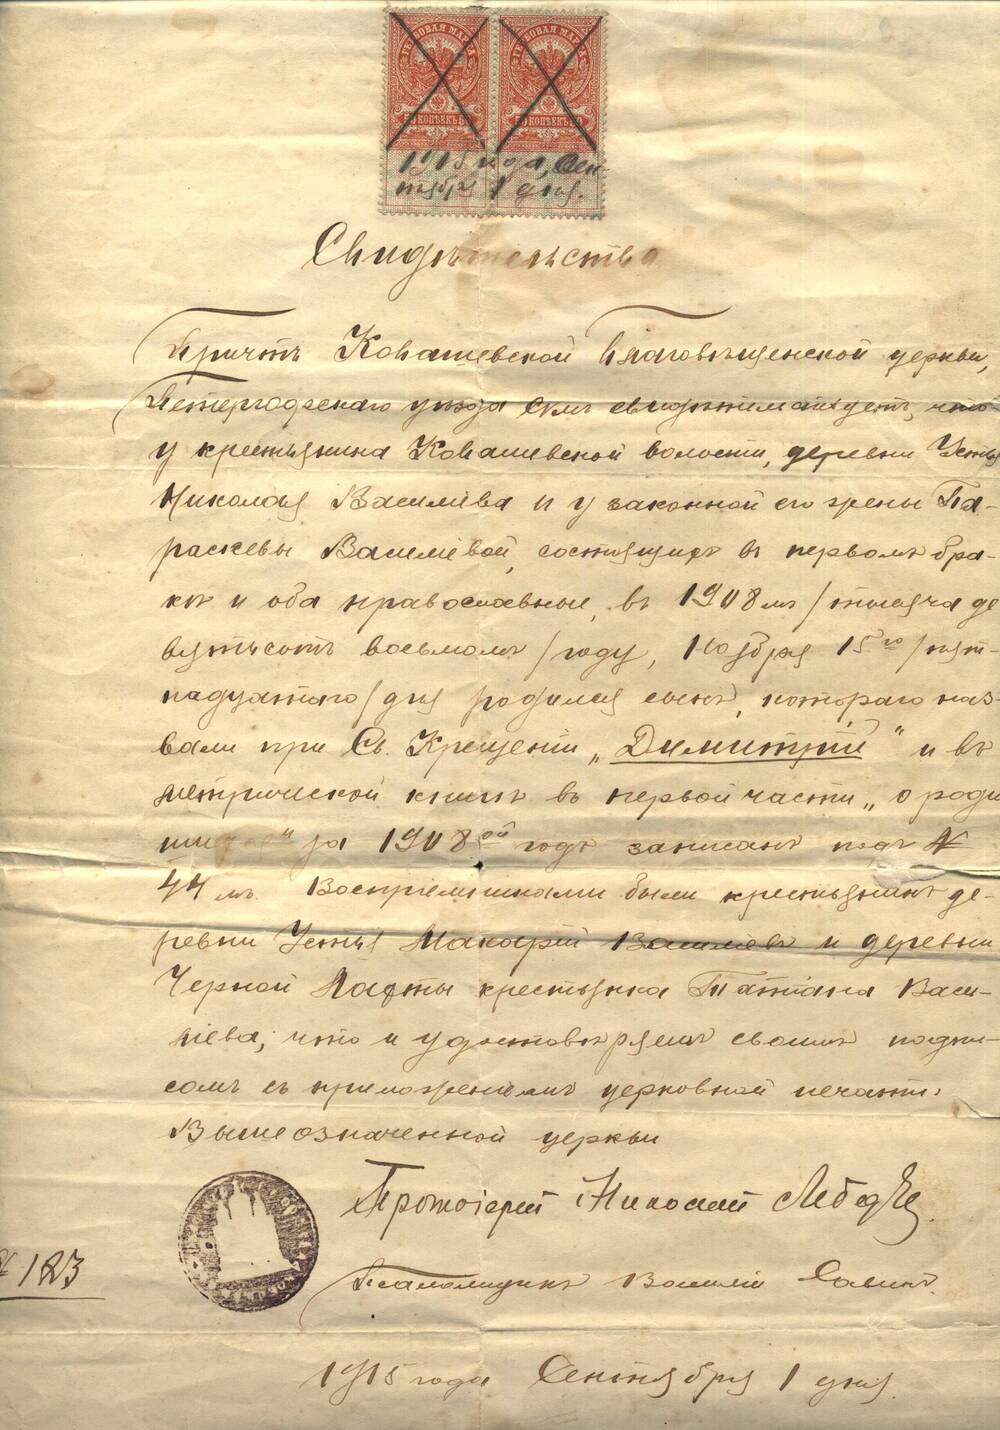 ГЕРБОВАЯ МАРКА ГЕРБОВАЯ МАРКА
50 КОПѢЕКЪ 50 50 КОПѢЕКЪ 50
1915 года, Сен-
тября 1 дня.
Свидѣтельство
Причтъ Ковашевской Благовѣщенской церкви,
Петергофскаго уѣзда симъ свидѣтельствуетъ, что
у крестьянина Ковашевской волости, деревни Устья
Николая Василiева и у законной его жены Па-
раскевы Василiевой, состоящихъ в первомъ бра-
кѣ и оба православные, въ 1908 мъ /тысяча де
вятьсотъ восьмомъ/ году, Ноября 15го /пят-
надцатого/ дня родился сынъ, котораго наз-
вали при Св. Крещенiи „Димитрiй“ и въ
метрической книгѣ въ первой части „о роди
“ за 1908ой годъ записанъ подъ №
44 мъ. Воспрiемниками были крестьянинъ де-
ревни Устья Макарiй Василiевъ и деревни
Черной Лахты крестьянка Татiана Васи-
лiева, что и удостовѣряемъ своимъ подпи-
сомъ съ приложенiемъ церковной печати.
Вышеозначенной церкви
Протоiерей Николай Лебедев.
Псаломщикъ Василiй Савинъ.
№ 123
1915 года Сентября 1 дня.